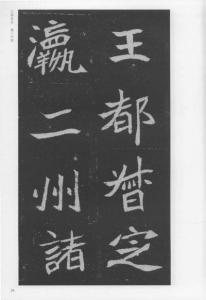 王都督定
瀛二州諸